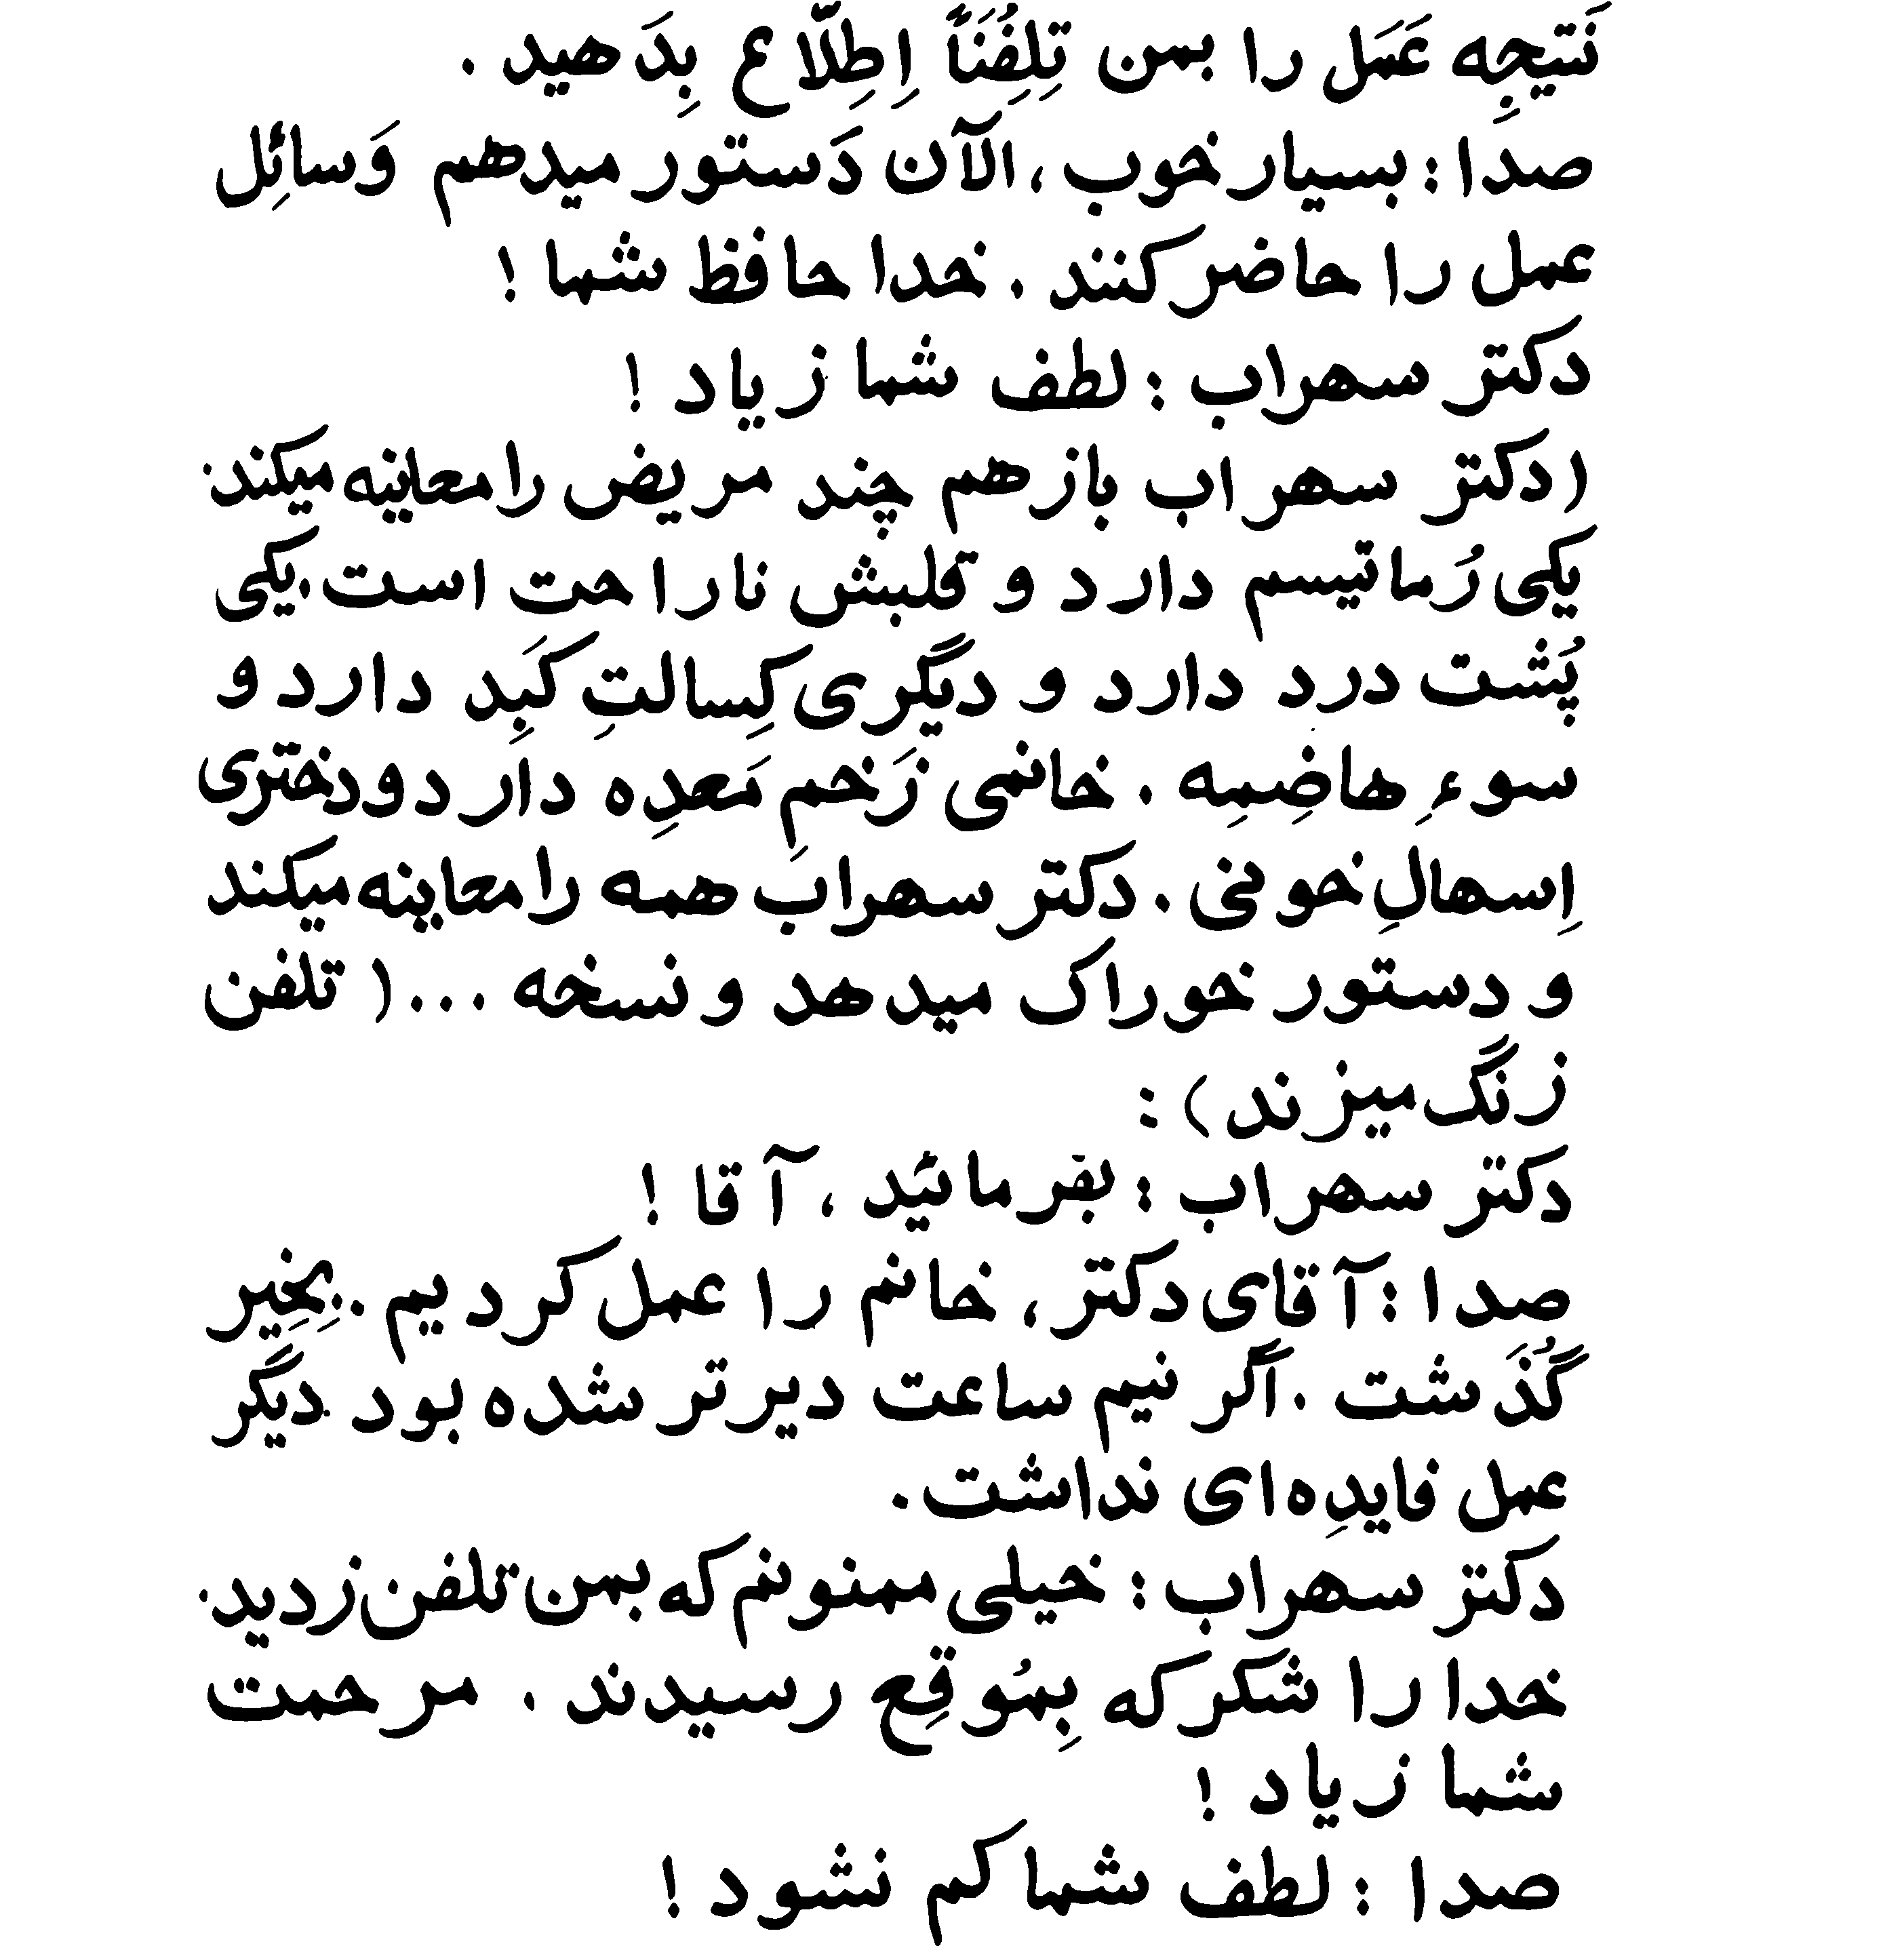 نَتیجِه عَمَل را بمن تِلِفُنَاً اِطِلّاع بِدَهید .
صدا : بسیار خوب ، الآن دَستور میدهم وَسائِل
عمل را حاضر کنند . خدا حافظ شما !
دکتر سهراب : لطف شما زیاد !
(دکتر سهراب باز هم چند مریض را معاینه میکند .
یکی رُماتیسم دارد و قلبش ناراحت است . یکی
پُشت درد دارد و دیگری کِسالتِ کَبِد دارد و
سوءِ هاضِمِه . خانمی زَخمِ مَعدِه دارد و دختری
اِسهالِ خونی . دکتر سهراب همه را معاینه میکند
و دستور خوراک میدهد و نسخه ... ( تلفن
زنگ میزند ) :
دکتر سهراب : بفرمائید ، آقا !
صدا : آقای دکتر ، خانم را عمل کردیم . بِخِیر
گُذَشت . اگر نیم ساعت دیرتر شده بود دیگر
عمل فایدِه ای نداشت .
دکتر سهراب : خیلی ممنونم که بمن تلفن زدید .
خدا را شکر که بِمُوقِع رسیدند . مرحمت
شما زیاد !
صدا : لطف شما کم نشود !